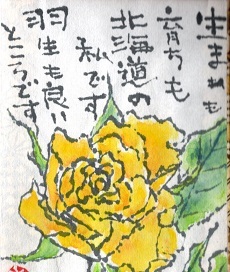 生まれも
育ちも
北海道の
私です
羽生も良い
ところです